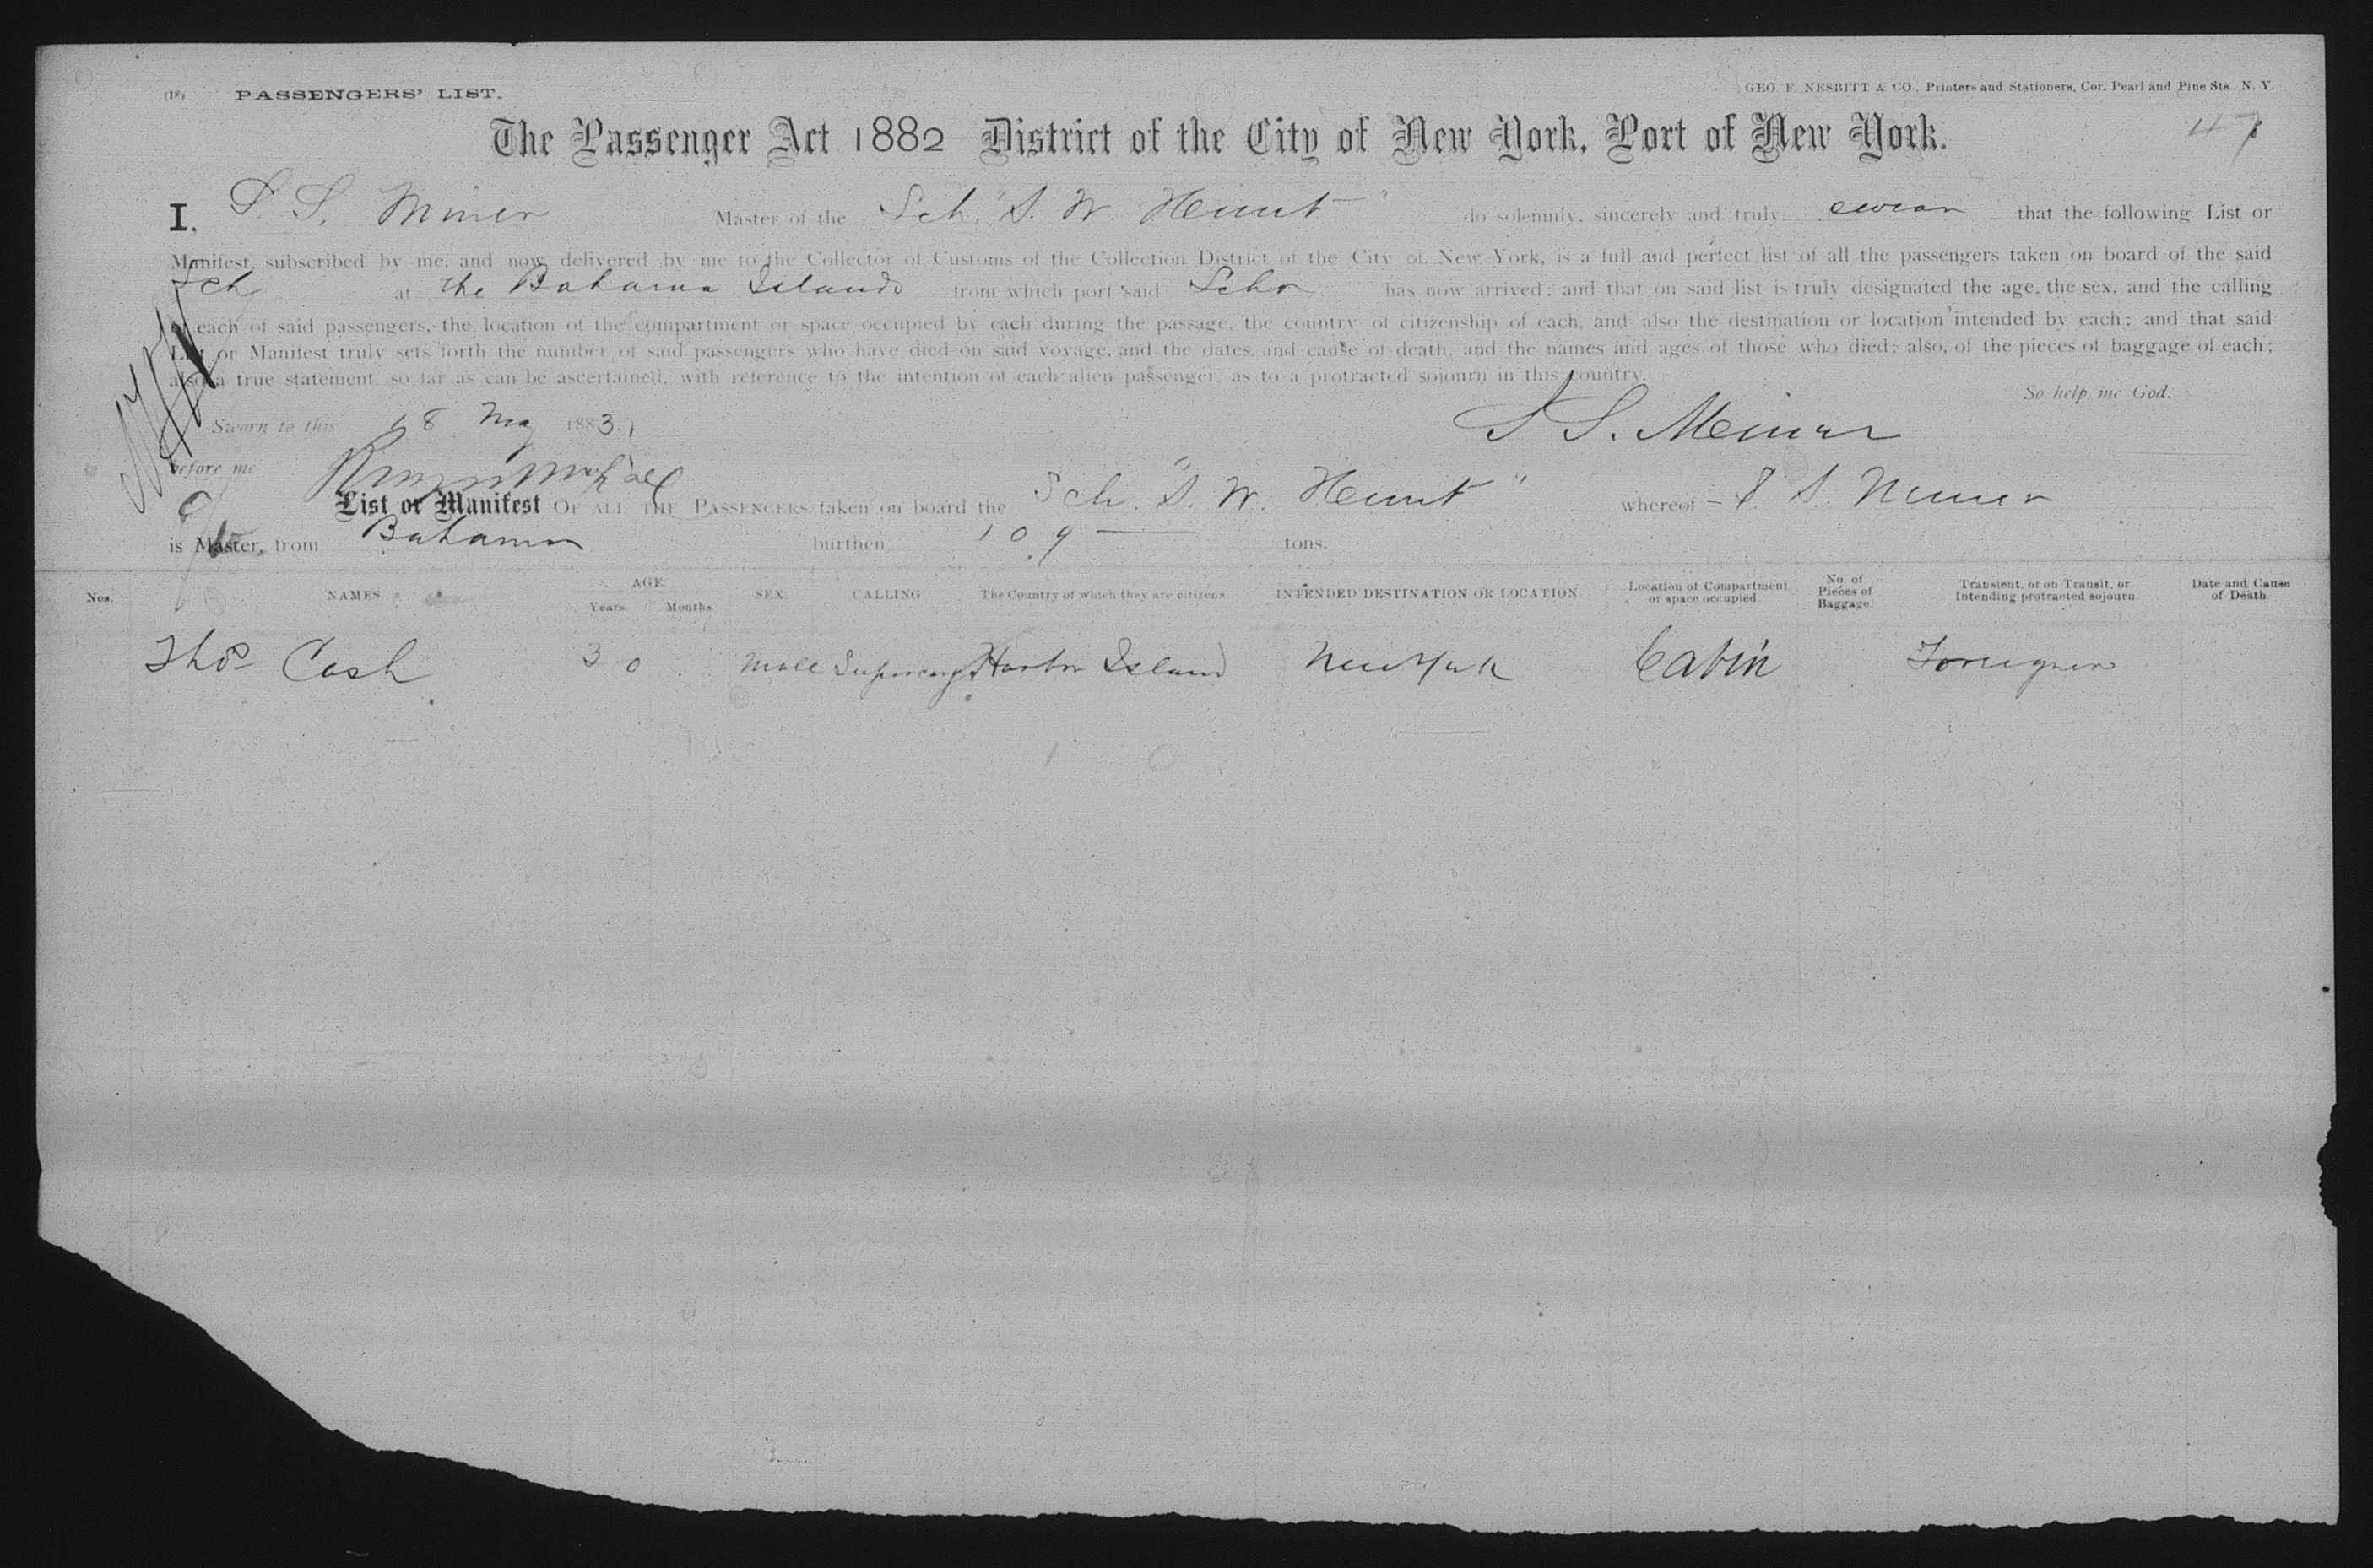 (18) PASSENGERS' LIST. GEO. F. NESBITT & CO., Printers and Stationers, Cor. Pearl and Pine Sts., N. Y.
The Passenger Act 1882 District of the City of New York, Port of New York. 47
I, S. S. Miner Master of the Sch. "S. W. Hunt" do solemnly, sincerely and truly swear that the following List or
Manifest, subscribed by me, and now delivered by me to the Collector of Customs of the Collection District of the City of New York, is a full and perfect list of all the passengers taken on board of the said
Sch at the Bahama Islands from which port said Schr has now arrived; and that on said list is truly designated the age, the sex, and the calling
of each of said passengers, the location of the compartment or space occupied by each during the passage, the country of citizenship of each, and also the destination or location intended by each; and that said
List or Manifest truly sets forth the number of said passengers who have died on said voyage, and the dates and cause of death, and the names and ages of those who died; also, of the pieces of baggage of each;
also a true statement, so far as can be ascertained, with reference to the intention of each alien passenger, as to a protracted sojourn in this country.
So help me God.
Sworn to this 18 May 1883, S S. Miner
before me
List or Manifest OF ALL THE PASSENGERS taken on board the Sch. "S. W. Hunt" whereof S. S. Miner
is Master, from Bahama burthen 109 tons.
Nos. NAMES AGE. Years. Months. SEX. CALLING The Country of which they are citizens. INTENDED DESTINATION OR LOCATION Location of Compartment or space occupied. No. of Pieces of Baggage. Transient, or on Transit, or Intending protracted sojourn. Date and Cause of Death.
Thos Cash 30 Male Supercargo Harbor Island New York Cabin Foreigner